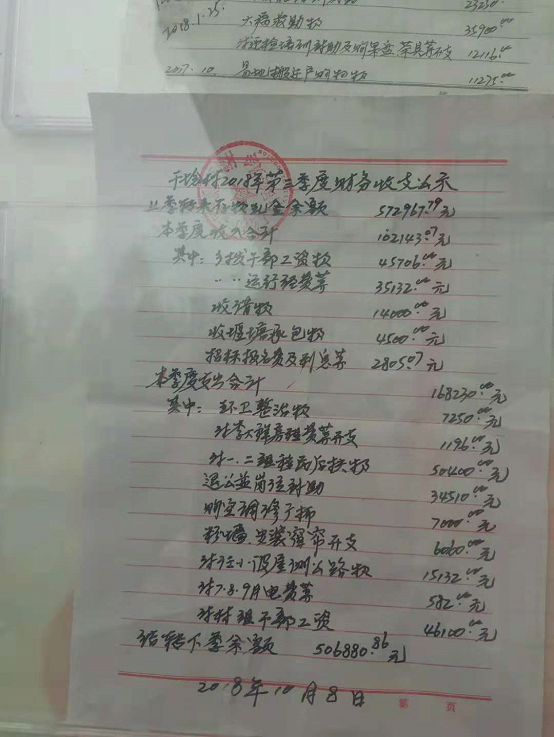 23230.⁰⁰
2018.1.25. 大福救助款 35900.⁰⁰
12116.⁰⁰
2017.10. 11275.⁰⁰
村2018年第三季度财务收支公示
上季转来存款现金余额 572967.⁷⁹元
本季度收入合计 102143.⁰⁷元
其中:乡拨干部工资款 45706.⁰⁰元
〃 〃 运行经费等 35132.⁰⁰元
收清款 14000.⁰⁰元
收堰塘承包款 4500.⁰⁰元
招标报名费及利息等 2805.⁰⁷元
本季度支出合计 168230.⁰⁰元
其中: 环卫整治款 7250.⁰⁰元
付李大祥房租费等开支 1196.⁰⁰元
付一.二组 款 50400.⁰⁰元
退公益岗位补助 34510.⁰⁰元
购空调 7000.⁰⁰元
粉墙.安装窗帘开支 6060.⁰⁰元
公路款 15132.⁰⁰元
付7.8.9月电费等 582.⁰⁰元
付村组干部工资 46100.⁰⁰元
结转下季余额 506880.⁸⁶元
2018年10月8日
第 页